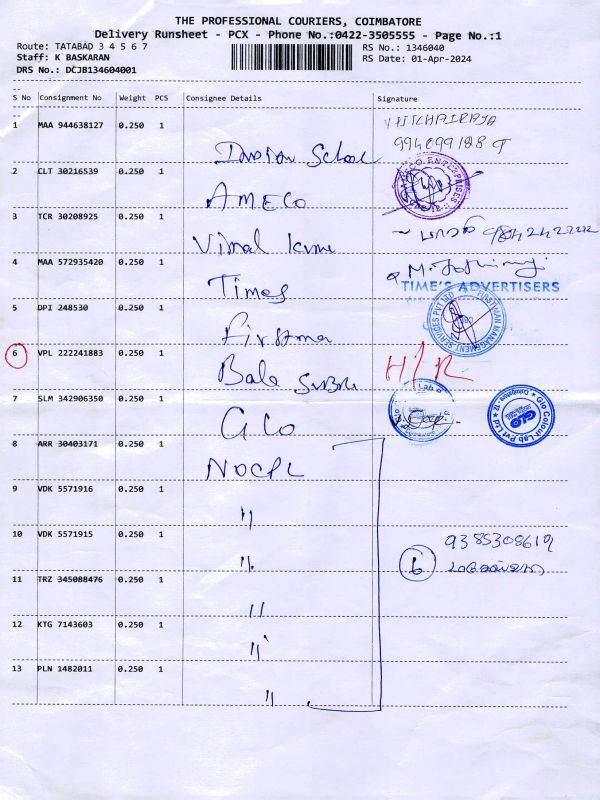 THE PROFESSIONAL COURIERS, COIMBATORE
Delivery Runsheet - PCX - Phone No.:0422-3505555 - Page No.:1
Route: TATABAD 3 4 5 6 7
Staff: K BASKARAN
DRS No.: DCJB134604001
RS No.: 1346040
RS Date: 01-Apr-2024
S No Consignment No Weight PCS Consignee Details Signature
1 MAA 944638127 0.250 1
2 CLT 30216539 0.250 1 AMECO
3 TCR 30208925 0.250 1 Vimal
4 MAA 572935420 0.250 1 Times
TIME'S ADVERTISERS
5 DPI 248530 0.250 1 Firstma
FIRSTMAN MANAGEMENT SERVICES PVT LTD
6 VPL 222241883 0.250 1 Bala H/R
7 SLM 342906350 0.250 1 Glo
Glo Colour Lab Pvt Ltd
GLO
8 ARR 30403171 0.250 1 NOCPL
9 VDK 5571916 0.250 1 "
10 VDK 5571915 0.250 1 "
9385308619
6
11 TRZ 345088476 0.250 1 "
12 KTG 7143603 0.250 1 "
13 PLN 1482011 0.250 1 "